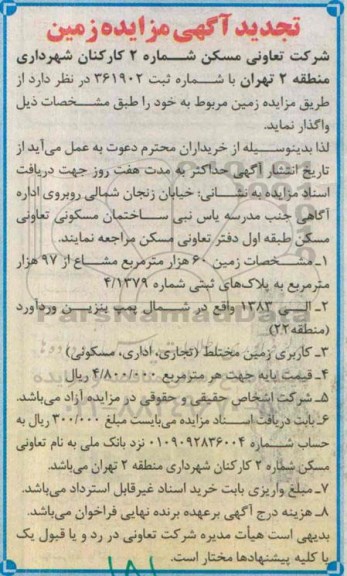 تجدید آگهی مزایده زمین
شرکت تعاونی مسکن شماره ۲ کارکنان شهرداری
منطقه ۲ تهران با شماره ثبت ۳۶۱۹۰۲ در نظر دارد از
طریق مزایده زمین مربوط به خود را طبق مشخصات ذیل
واگذار نماید.
لذا بدینوسیله از خریداران محترم دعوت به عمل می‌آید از
تاریخ انتشار آگهی حداکثر به مدت هفت روز جهت دریافت
اسناد مزایده به نشانی: خیابان زنجان شمالی روبروی اداره
آگاهی جنب مدرسه یاس نبی ساختمان مسکونی تعاونی
مسکن طبقه اول دفتر تعاونی مسکن مراجعه نمایند.
۱ـ مشخصات زمین ۶۰ هزار مترمربع مشاع از ۹۷ هزار
مترمربع به پلاک‌های ثبتی شماره ۴/۱۳۷۹
۲ـ الی ۱۳۸۳ واقع در شمال پمپ بنزین وردآورد
(منطقه۲۲)
۳ـ کاربری زمین مختلط (تجاری، اداری، مسکونی)
۴ـ قیمت پایه جهت هر مترمربع ۴/۸۰۰/۰۰۰ ریال
۵ـ شرکت اشخاص حقیقی و حقوقی در مزایده آزاد می‌باشد.
۶ـ بابت دریافت اسناد مزایده می‌بایست مبلغ ۳۰۰/۰۰۰ ریال به
حساب شماره ۰۱۰۹۰۹۲۸۳۶۰۰۴ نزد بانک ملی به نام تعاونی
مسکن شماره ۲ کارکنان شهرداری منطقه ۲ تهران می‌باشد.
۷ـ مبلغ واریزی بابت خرید اسناد غیرقابل استرداد می‌باشد.
۸ـ هزینه درج آگهی برعهده برنده نهایی فراخوان می‌باشد.
بدیهی است هیأت مدیره شرکت تعاونی در رد و یا قبول یک
یا کلیه پیشنهادها مختار است.
ParsNamadData